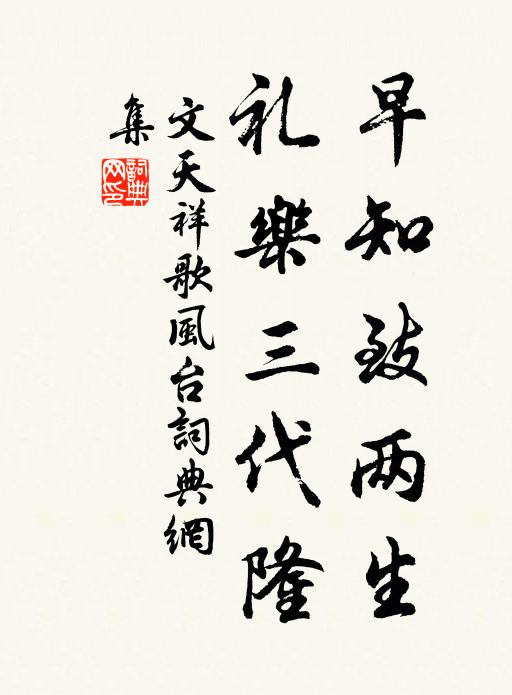 早知致两生
礼樂三代隆
文天祥歌風台詞典網
集
詞典
网印